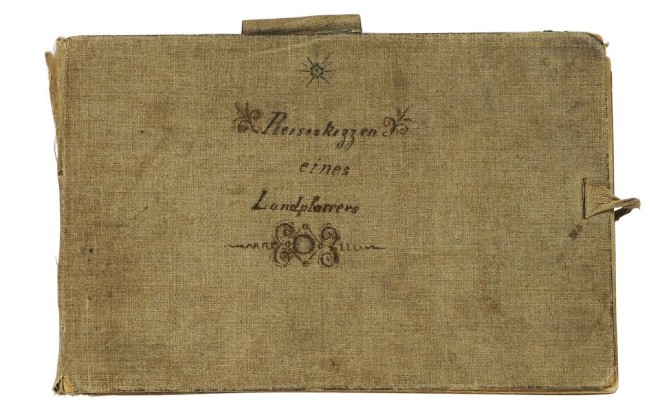 Reiseskizzen
eines
Landpfarrers